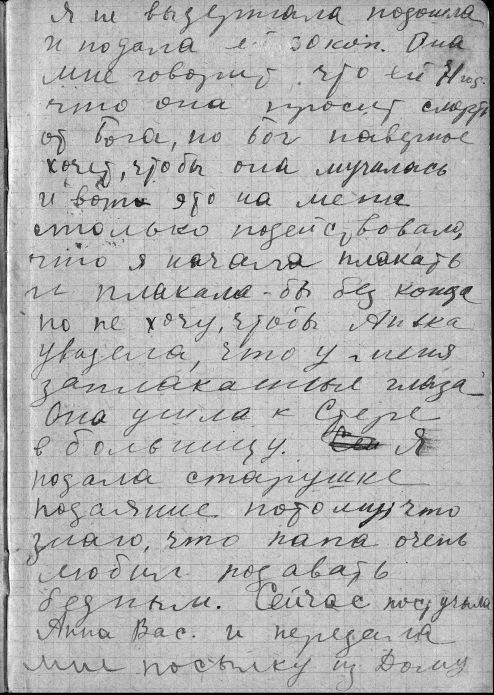 Я не выдержала подошла
и подала ей 30 коп. Она
мне говорит что ей 71 год.
что она просит смерть
от Бога, но Бог наверное
хочет, чтобы она мучилась
и вот это на меня
столько подействовало,
что я начала плакать
и плакала-бы без конца
но не хочу, чтобы Анька
увидела, что у меня
заплаканные глаза
Она ушла к Стере
в больницу. Я
подала старушке
подаяние потому, что
знаю, что папа очень
любил подавать
бедным. Сейчас постучала
Анна Вас. и передала
мне посылку из Дому